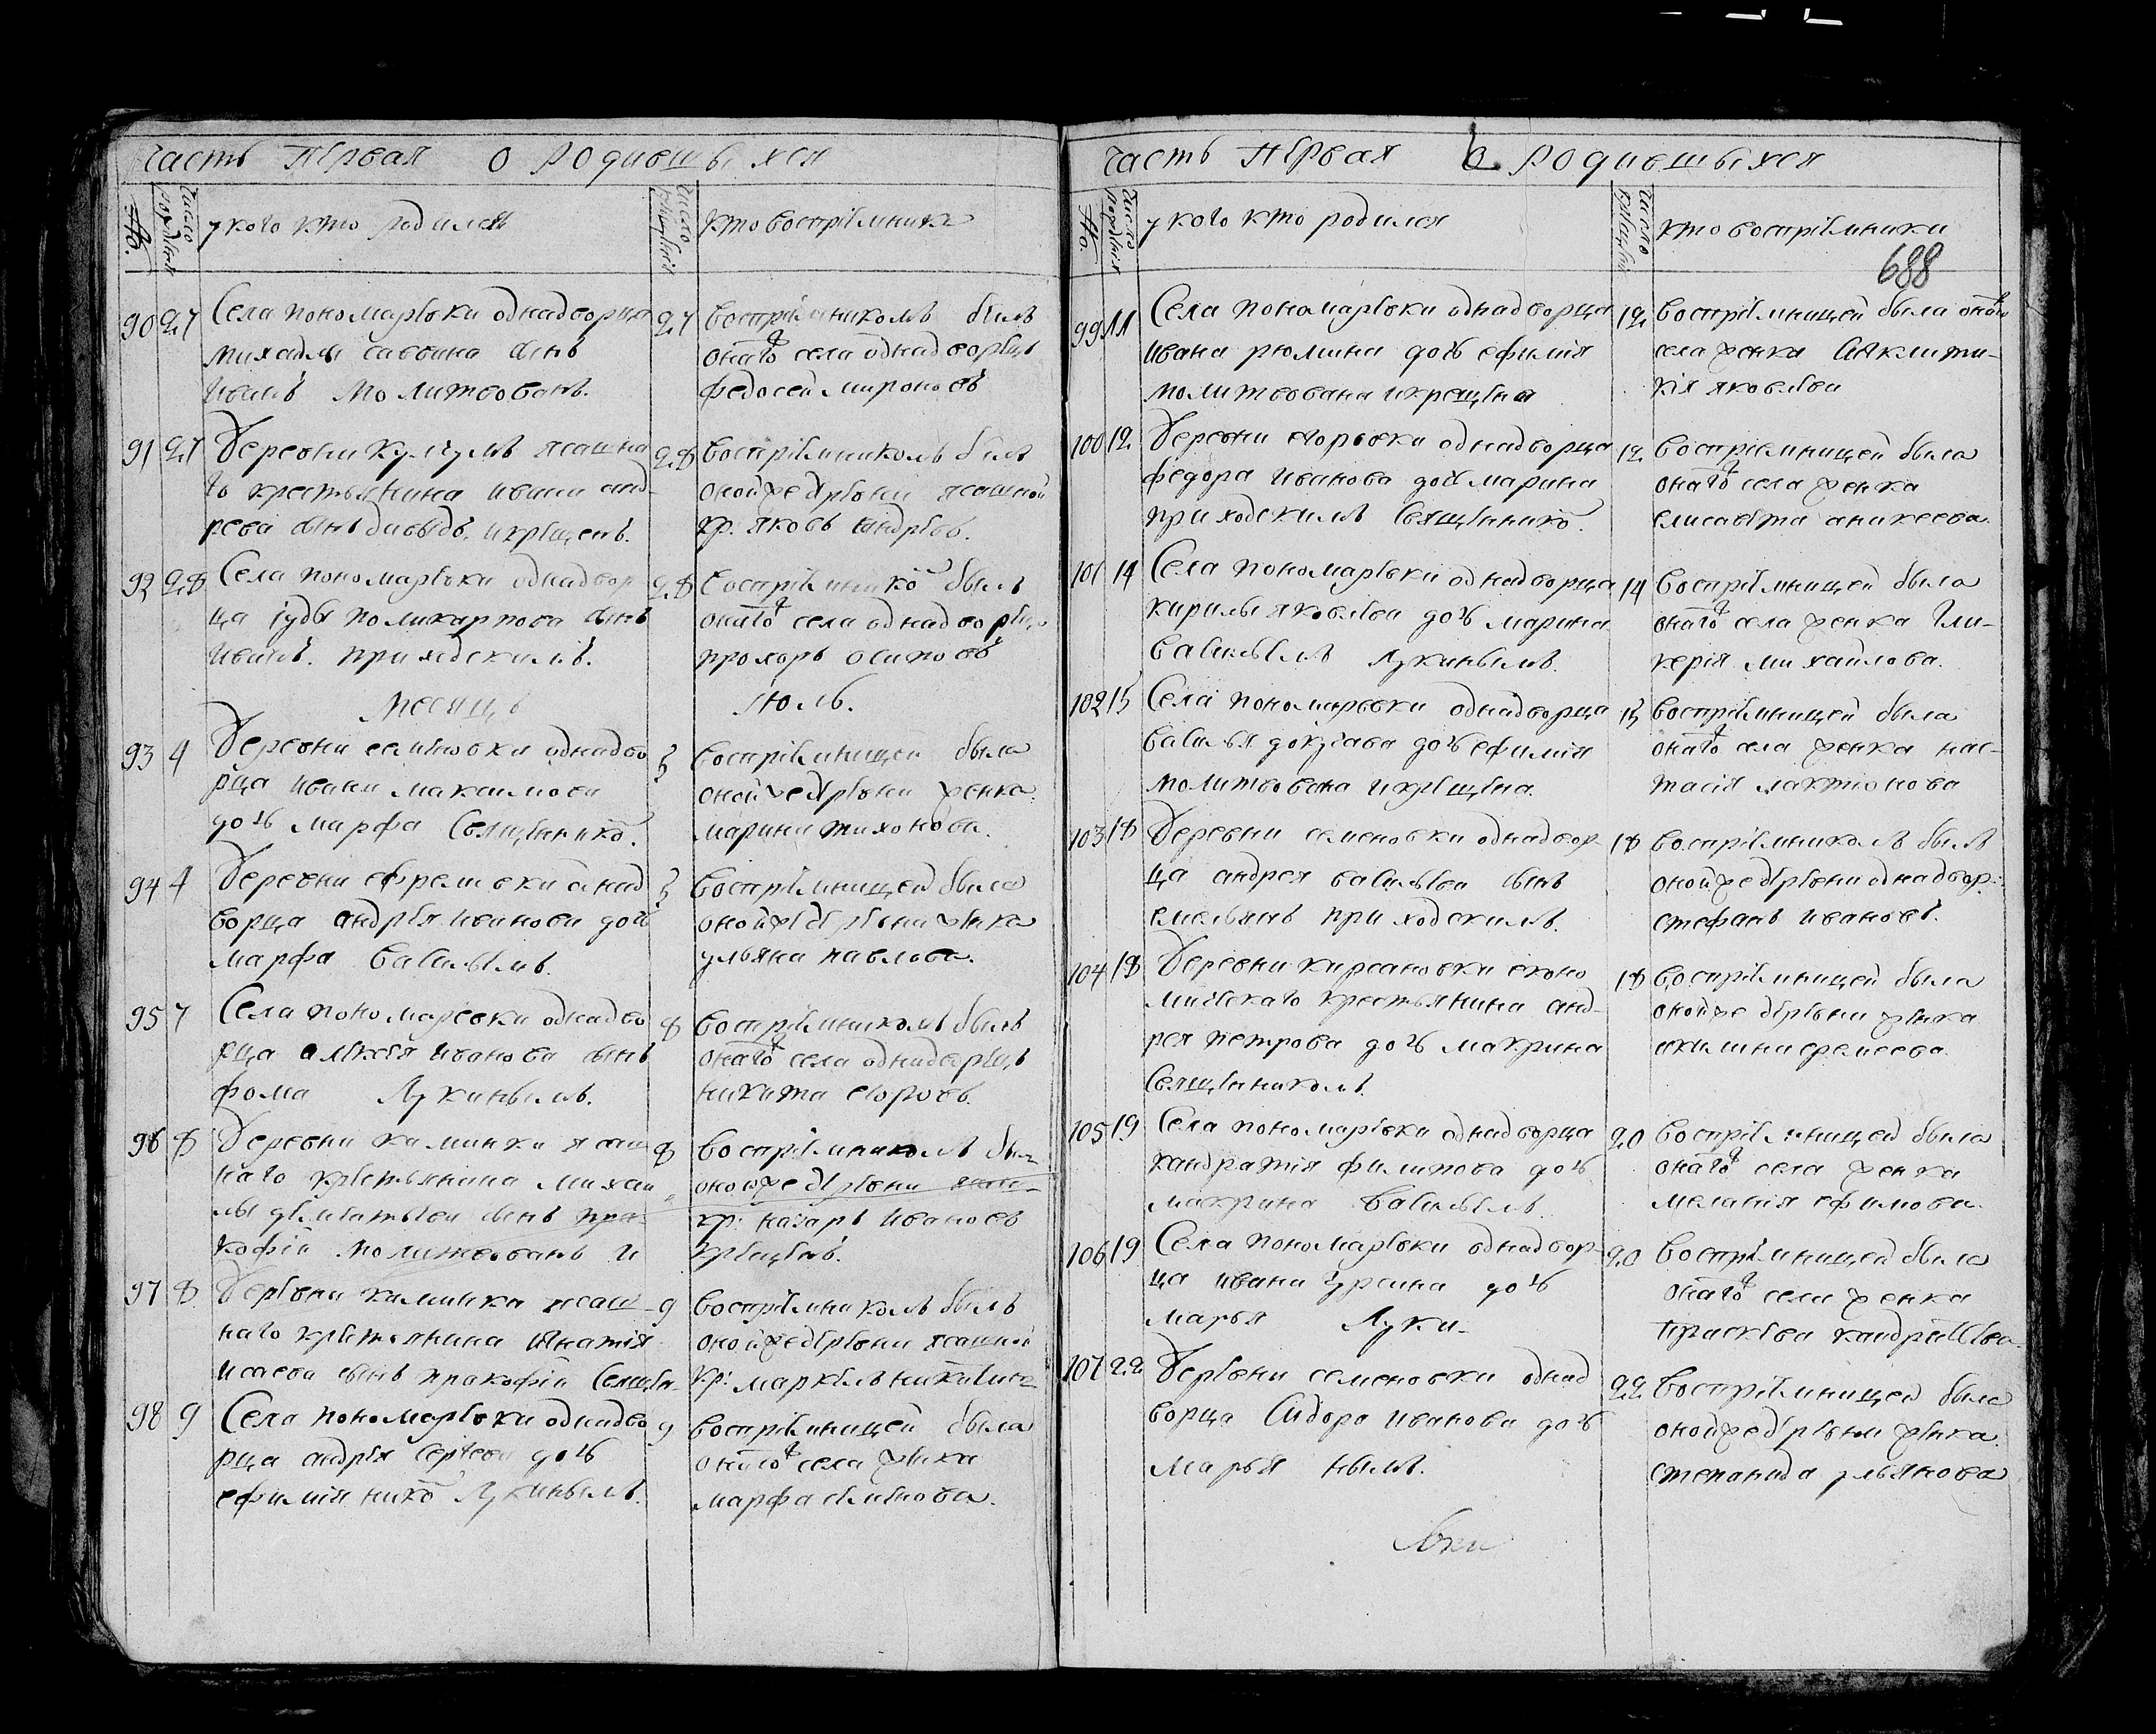 часть первая о родившыхся
№
число рождения
у кого кто родился
число крещения
кто восприемники
90 27 Села пономаревки однадворца
михаилы саввина сынъ
иванъ молитвованъ.
27 восприемникомъ былъ
онаго села однадворецъ
федосей мироновъ
91 27 Деревни ясашна
го крестьянина ивана анд-
реева сынъ давыдъ. и крещенъ.
28 восприемникомъ былъ
оной же деревни ясашной
кр. яковъ андреевъ.
92 28 Села пономаревки однадвор
ца iуды поликарпова сынъ
иванъ. приходскимъ.
28 восприемнико былъ
онаго села однадворец
прохоръ осиповъ
месяцъ июль.
93 4 Деревни семеновки однадво
рца ивана максимова
дочь марфа священнико.
5 восприемницей была
оной же деревни женка
марина тихонова.
94 4 Деревни ефремовки однад
ворца андрея иванова дочь
марфа васильемъ.
5 восприемницей была
оной же деревни женка
ульяна павлова.
95 7 Села пономаревки однадво
рца алексея иванова сынъ
фома Лукинымъ.
8 восприемникомъ былъ
онаго села однадворецъ
никита егоровъ.
96 8 Деревни каминки ясаш
наго крестьянина михаи
лы дементьева сынъ пра-
кофiй молитвованъ и
8 восприемникомъ был
оной же деревни ясаш-
кр: назаръ ивановъ
крещенъ.
97 8 Деревни каминка ясаш-
наго крестьянина игнатiя
исаева сынъ пракофiй свяще-
9 восприемникомъ былъ
оной же деревни ясашной
кр: маркелъ никитин
98 9 Села пономаревки однадво
рца андрея сергеева дочь
ефимiя нико Лукинымъ.
9 восприемницей была
онаго села женка
марфа семенова.
часть первая о родившыхся
№
число рождения
у кого кто родился
число крещения
кто восприемники
688
99 11 Села пономаревки однадворца
ивана рюмина дочь ефимiя
молитвована и крещена
12 восприемницей была онаго
села женка
кiя яковлева
100 12 Деревни егорьевки однадворца
федора иванова дочь марина
приходскимъ священнико.
12 восприемницей была
онаго села женка
елисавета аникеева.
101 14 Села пономаревки однадворца
кирилы яковлева дочь марина
васильемъ Лукинымъ.
14 восприемницей была
онаго села женка гли-
керiя михайлова.
102 15 Села пономаревки однадворца
василья докучаева дочь ефимiя
молитвована и крещена.
15 восприемницей была
онаго села женка нас-
тасiя лактионова
103 18 Деревни семеновки однадвор-
ца андрея васильева сынъ
емельянъ приходскимъ.
18 восприемникомъ былъ
оной же деревни однадвор:
стефанъ ивановъ.
104 18 Деревни кирсановки еконо
мическаго крестьянина анд-
рея петрова дочь макрина
священникомъ.
18 восприемницей была
оной же деревни женка
акилина еремеева.
105 19 Села пономаревки однадворца
кандратiя филипова дочь
макрина васильемъ.
20 восприемницей была
онаго села женка
меланiя ефимова.
106 19 Села пономаревки однадвор-
ца ивана дочь
марья Луки-
20 восприемницей была
онаго села женка
прасковея кандратьева.
107 22 Деревни семеновки однад
ворца Сидора иванова дочь
марья нымъ.
22 восприемницей была
оной же деревни женка
степанида ульянова